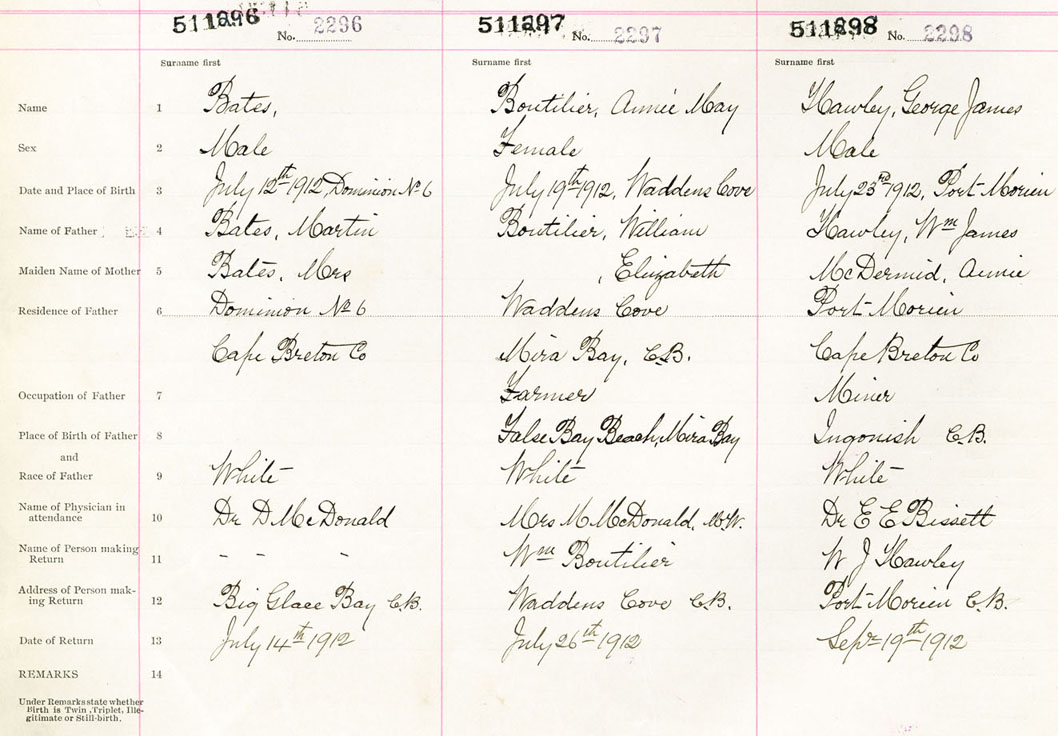 511296 No. 2296 511297 No. 2297 511298 No. 2298
Surname first Surname first Surname first
Name 1 Bates, Boutilier, Annie May Hawley, George James
Sex 2 Male Female Male
Date and Place of Birth 3 July 12th 1912, Dominion No 6 July 19th 1912, Waddens Cove July 23rd 1912, Port Morien
Name of Father 4 Bates, Martin Boutilier, William Hawley, Wm James
Maiden Name of Mother 5 Bates, Mrs , Elizabeth McDermid, Annie
Residence of Father 6 Dominion No 6 Waddens Cove Port Morien
Cape Breton Co Mira Bay, C.B. Cape Breton Co
Occupation of Father 7 Farmer Miner
Place of Birth of Father 8 False Bay Beach, Mira Bay Ingonish C.B.
and
Race of Father 9 White White White
Name of Physician in
attendance 10 Dr D McDonald Mrs M McDonald, M.W. Dr E E Bissett
Name of Person making
Return 11 - - - Wm Boutilier W J Hawley
Address of Person mak-
ing Return 12 Big Glace Bay C.B. Waddens Cove C.B. Port Morien C.B.
Date of Return 13 July 14th 1912 July 26th 1912 Sepr 19th 1912
REMARKS 14
Under Remarks state whether
Birth is Twin, Triplet, Ille-
gitimate or Still-birth.